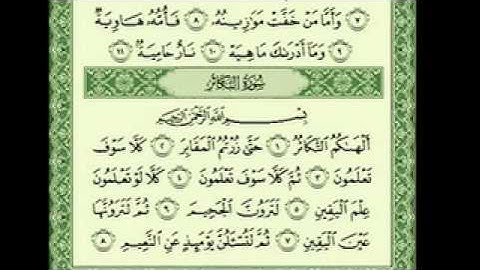 ٧ وَأَمَّا مَنْ خَفَّتْ مَوَٰزِينُهُۥ ٨ فَأُمُّهُۥ هَاوِيَةٌ
٩ وَمَآ أَدْرَىٰكَ مَا هِيَهْ ١٠ نَارٌ حَامِيَةٌۢ ١١
سُورَةُ التَّكَاثُرِ
بِسْمِ ٱللَّهِ ٱلرَّحْمَٰنِ ٱلرَّحِيمِ
أَلْهَىٰكُمُ ٱلتَّكَاثُرُ ١ حَتَّىٰ زُرْتُمُ ٱلْمَقَابِرَ ٢ كَلَّا سَوْفَ
تَعْلَمُونَ ٣ ثُمَّ كَلَّا سَوْفَ تَعْلَمُونَ ٤ كَلَّا لَوْ تَعْلَمُونَ
عِلْمَ ٱلْيَقِينِ ٥ لَتَرَوُنَّ ٱلْجَحِيمَ ٦ ثُمَّ لَتَرَوُنَّهَا
عَيْنَ ٱلْيَقِينِ ٧ ثُمَّ لَتُسْـَٔلُنَّ يَوْمَئِذٍ عَنِ ٱلنَّعِيمِ ٨